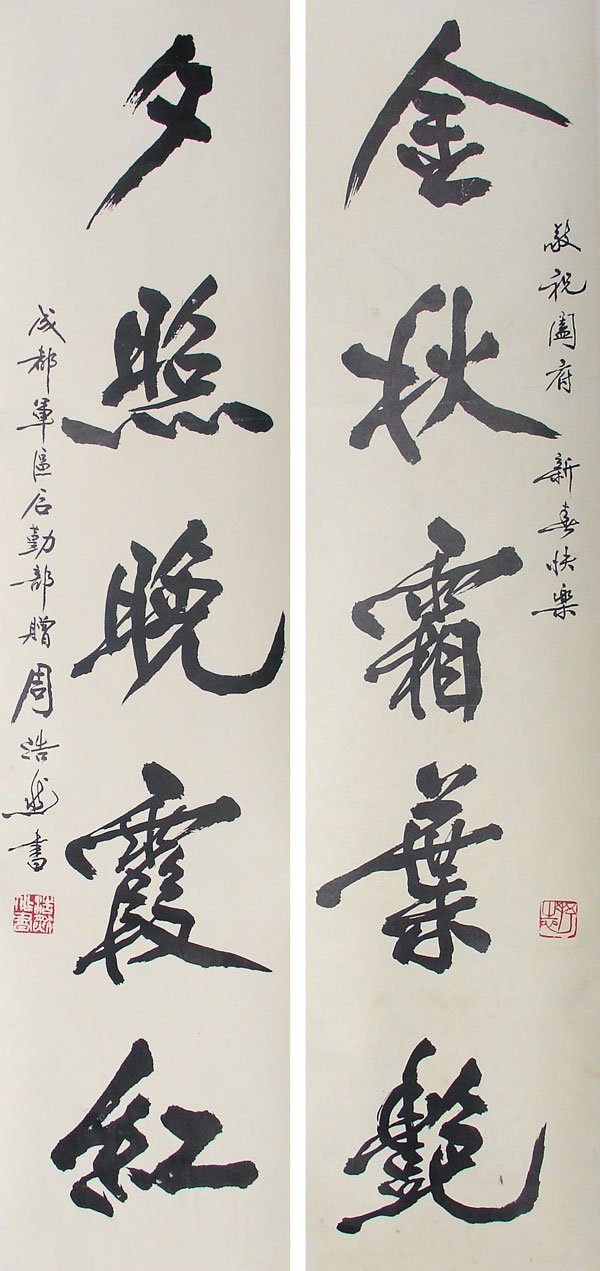 敬祝阖府 新喜快樂
金秋霜葉艷
夕照晚霞紅
成都軍區后勤部贈周浩然書